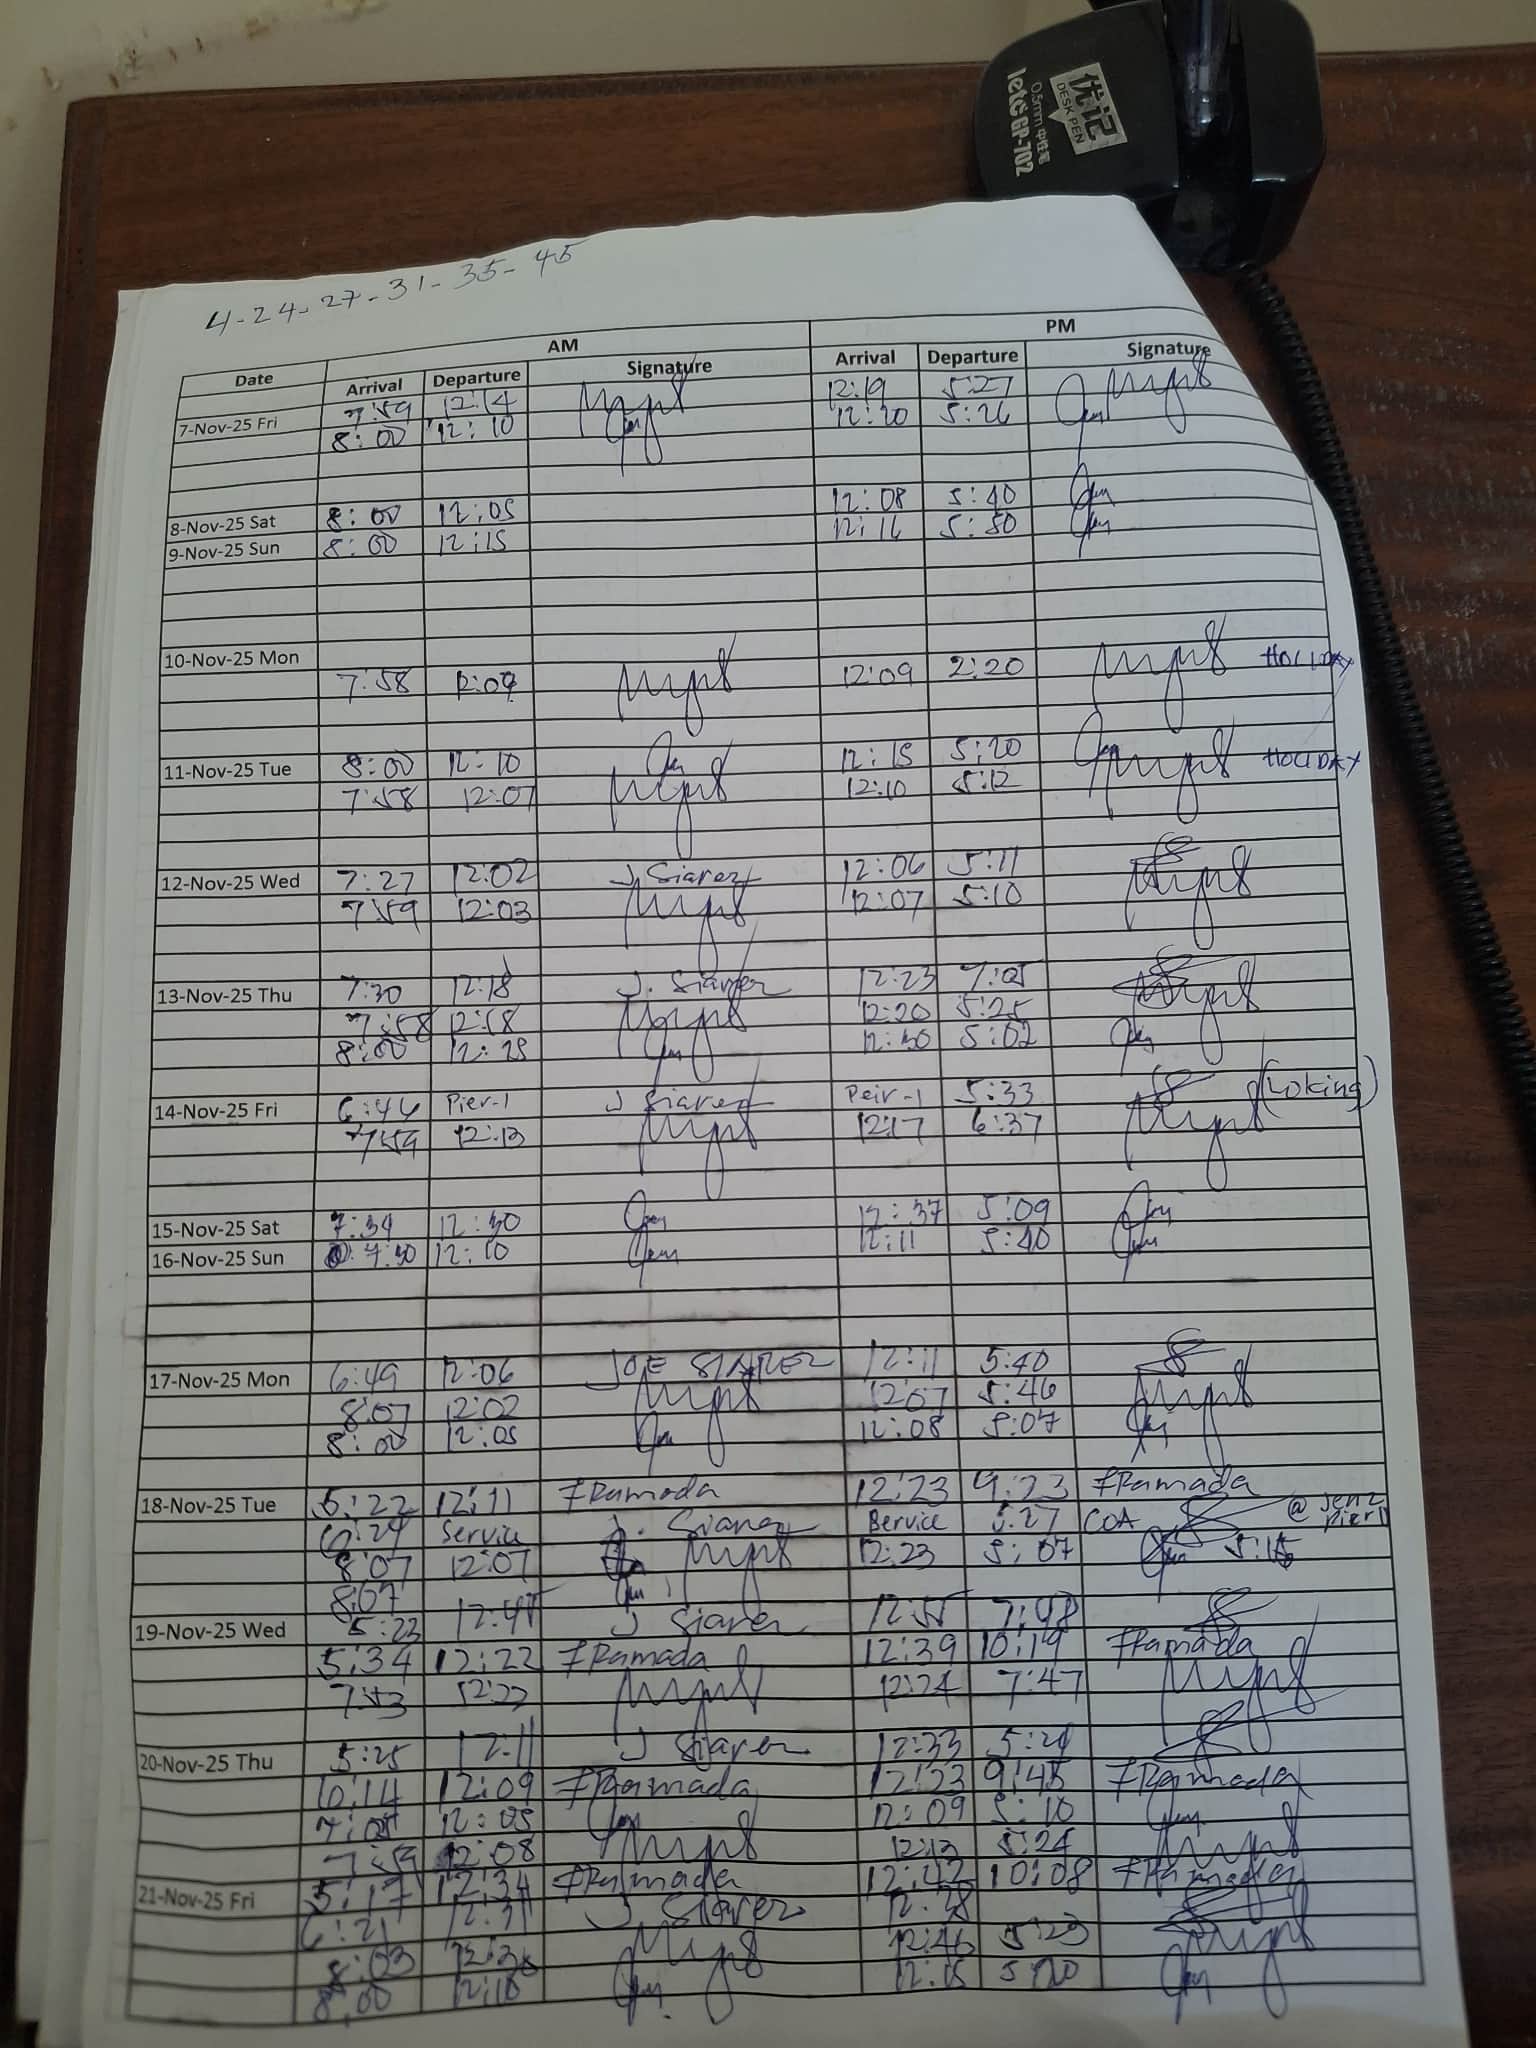 优记
DESK PEN
0.5mm 中性笔
letG GP-702
4-24-27-31-35-45
AM PM
Date Arrival Departure Signature Arrival Departure Signature
7-Nov-25 Fri 7:59 12:14 12:19 5:27
8:00 12:10 12:20 5:26
8-Nov-25 Sat 8:00 12:05 12:08 5:40
9-Nov-25 Sun 8:00 12:15 12:16 5:50
10-Nov-25 Mon
7:58 12:07 12:09 2:20 HOLIDAY
11-Nov-25 Tue 8:00 12:10 12:15 5:20 HOLIDAY
7:58 12:07 12:10 5:12
12-Nov-25 Wed 7:27 12:02 J Siarez 12:06 5:11
7:59 12:03 12:07 5:10
13-Nov-25 Thu 7:30 12:18 J. Siarez 12:23 7:05
7:58 12:18 12:20 5:25
8:00 12:25 12:30 5:02
14-Nov-25 Fri 6:46 Pier-1 J Siarez Peir-1 5:33 (Loking)
7:59 12:13 12:17 6:37
15-Nov-25 Sat 7:34 12:30 12:37 5:09
16-Nov-25 Sun 7:30 12:10 12:11 5:40
17-Nov-25 Mon 6:49 12:06 JOE SIAREZ 12:11 5:40
8:07 12:02 12:07 5:46
8:00 12:05 12:08 5:07
18-Nov-25 Tue 5:22 12:11 FRamada 12:23 9:23 FRamada
6:24 Service J. Siarez Bervice 5:27 COA @
8:07 12:07 12:23 5:07
8:07
19-Nov-25 Wed 5:23 12:45 J Siarez 12:55 7:48
5:34 12:22 FRamada 12:39 10:19 FRamada
7:53 12:23 12:24 7:47
20-Nov-25 Thu 5:25 12:11 J Siarez 12:33
6:14 12:09 FRamada 12:23 9:45 FRamada
7:05 12:05 12:09 5:10
7:59 12:08 12:13 5:24
21-Nov-25 Fri 5:17 12:34 FRamada 12:42 10:08 FRamada
6:21 12:31 J Siarez 12:38
8:03 12:46 5:23
8:00 12:10 12:15